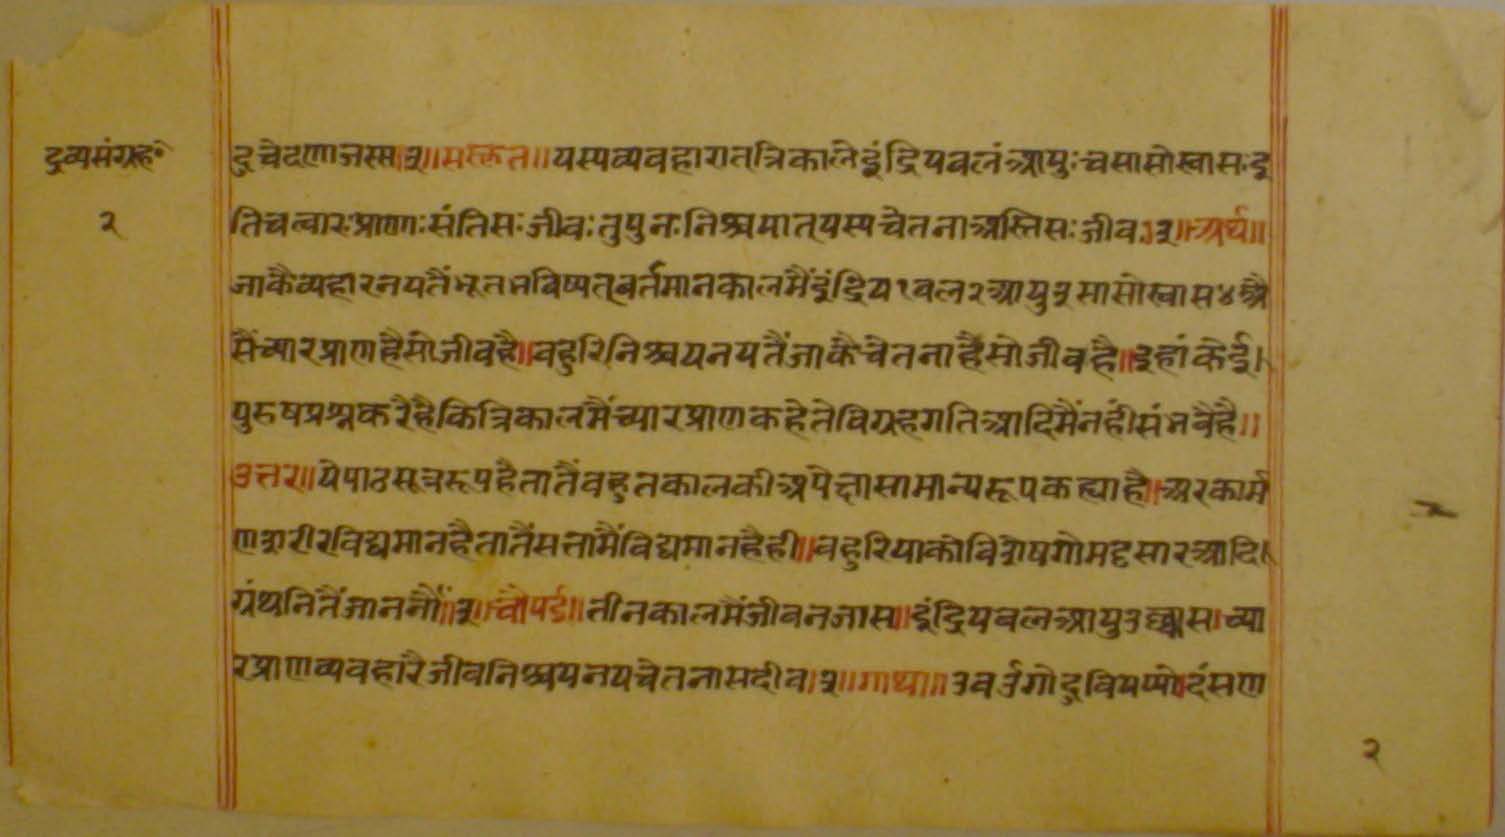 द्रव्यसंग्रह॰
२
दु चेदणा जस्स।३॥संस्कृत॥ यस्य व्यवहारात् त्रिकाले इंद्रिय बलं आयुः च सासोस्वासः इ
ति चत्वारः प्राणाः संति सः जीवः तु पुनः निश्चयात् यस्य चेतना अस्ति सः जीव।३॥अर्थ॥
जाकै व्यहारनयतैं भूत भविष्यत् वर्तमान कालमैं इंद्रिय १ बल २ आयु ३ सासोस्वास ४ अै
सैं च्यार प्राण है सो जीव है॥ बहुरि निश्चयनयतैं जाकै चेतना है सो जीव है॥ इहां केई।
पुरुष प्रश्न करै है कि त्रिकालमैं च्यार प्राण कहे ते विग्रहगति आदिमैं नहीं संभवै है॥
उत्तर॥ ये पाठ सूत्ररूप है तातैं बहुत कालकी अपेक्षा सामान्यरूप कह्या है॥ अर कार्म
ण शरीर विद्यमान है तातैं सत्तामैं विद्यमान है ही॥ बहुरि याको विशेष गोमट्टसार आदि।
ग्रंथनितैं जाननौं॥३॥चौपई॥ तीन कालमैं जीवन जास॥ इंद्रिय बल आयु उछ्वास। च्या
र प्राण व्यवहारै जीव निश्चयनय चेतना सदीव।३॥गाथा॥ उवउंगो दुवियप्पो दंसण
२